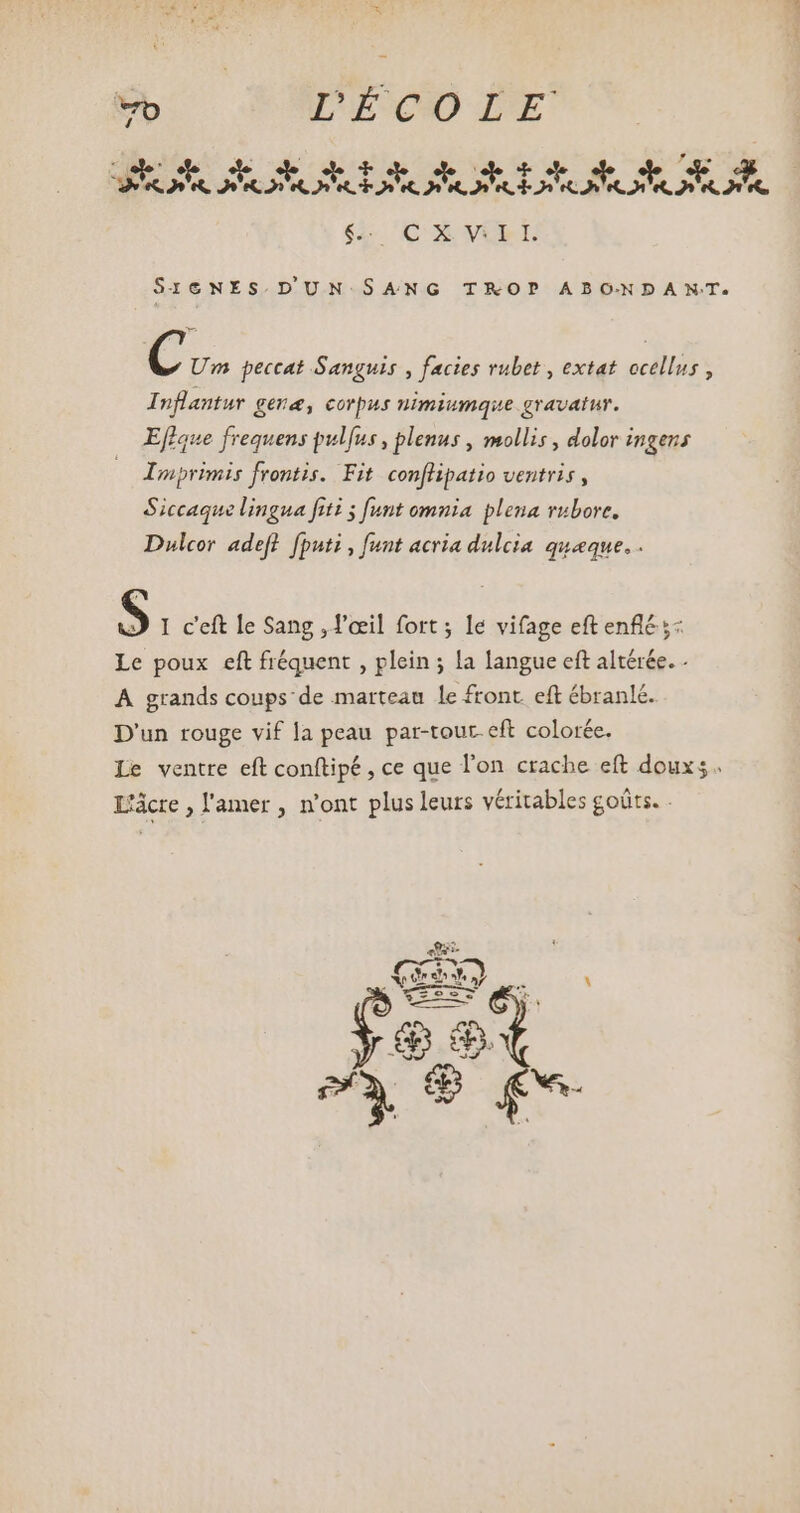 70 L'ÉCOLE
§. CXVIII.
SIGNES D'UN SANG TROP ABONDANT.
CUm peccat Sanguis, facies rubet, extat ocellus,
Inflantur genæ, corpus nimiumque gravatur.
Eſtque frequens pulſus, plenus, mollis, dolor ingens
Imprimis frontis. Fit conſtipatio ventris,
Siccaque lingua ſiti; ſunt omnia plena rubore.
Dulcor adeſt ſputi, ſunt acria dulcia quæque.
SI c'eſt le Sang, l'œil fort; le viſage eſt enflé;
Le poux eſt fréquent, plein; la langue eſt altérée.
A grands coups de marteau le front eſt ébranlé.
D'un rouge vif la peau par-tout eſt colorée.
Le ventre eſt conſtipé, ce que l'on crache eſt doux;
L'âcre, l'amer, n'ont plus leurs véritables goûts.